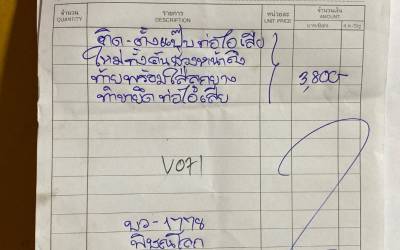 จำนวน รายการ หน่วยละ จำนวนเงิน
QUANTITY DESCRIPTION UNIT PRICE AMOUNT
ติด-ตั้งแป๊บท่อไอเสีย
ใหม่ทั้งคันช่วงหน้าถึง
ท้ายพร้อมใส่ลูกยาง 3,800-
ท่อไอเสีย
V071
บว-1778
พิษณุโลก